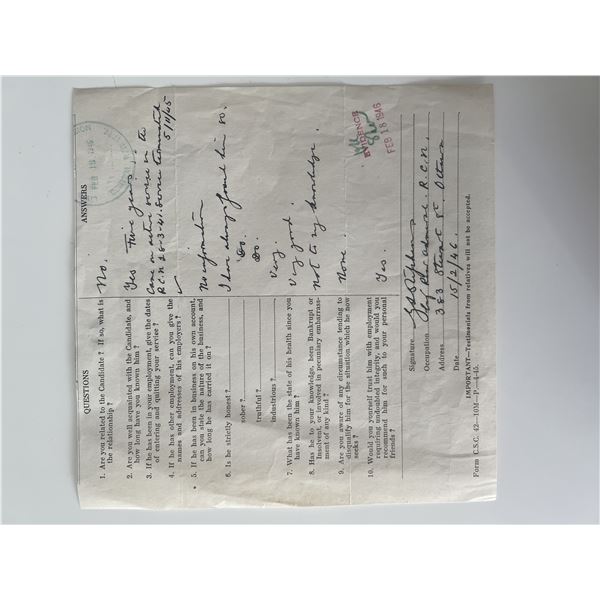 QUESTIONS
ANSWERS
1. Are you related to the Candidate ? If so, what is
the relationship ?
No.
2. Are you well acquainted with the Candidate, and
how long have you known him ?
Yes Five years
3. If he has been in your employment, give the dates
of entering and quitting your service ?
Came on active service in the
R.C.N 28-3-41. Service terminated
5/11/45
4. If he has other employment, can you give the
names and addresses of his employers ?
5. If he has been in business on his own account,
can you state the nature of the business, and
how long he has carried it on ?
No information
6. Is he strictly honest ?
I have always found him so.
sober ?
Do.
truthful ?
Do.
industrious ?
Very.
7. What has been the state of his health since you
have known him ?
Very good.
8. Has he to your knowledge, been Bankrupt or
Insolvent, or involved in pecuniary embarrass-
ment of any kind ?
Not to my knowledge.
9. Are you aware of any circumstance tending to
disqualify him for the situation which he now
seeks ?
None.
10. Would you yourself trust him with employment
requiring undoubted integrity, and would you
recommend him for such to your personal
friends ?
Yes.
EVIDENCE
FEB 18 1946
FEB 19 1946
Signature
Occupation R.C.N.
Address 383 Stewart St Ottawa
Date 15/2/46.
IMPORTANT—Testimonials from relatives will not be accepted.
Form C.S.C. 42